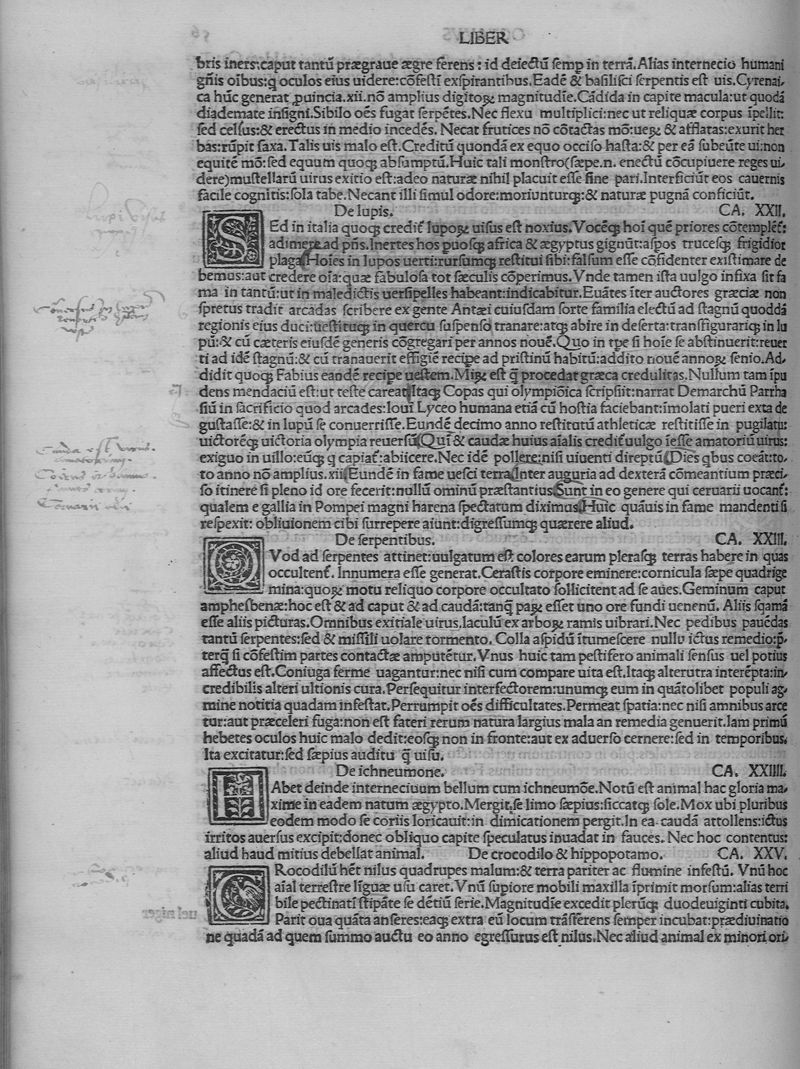 LIBER
bris iners:caput tantũ prægraue ægre ferens: id deiectũ semp in terrã. Alias internecio humani
gñis oĩbus:q oculos eius uidere:cõfestĩ exspirantibus. Eadẽ & basilisci serpentis est uis. Cyrenai,
ca hũc generat ꝓuincia.xii.nõ amplius digitoꝝ magnitudĩe. Cãdida in capite macula:ut quodã
diademate insigni. Sibilo oẽs fugat serpẽtes. Nec flexu multiplici:nec ut reliquæ corpus ĩpellit:
sed celsus:& erectus in medio incedẽs. Necat frutices nõ cõtactas mõ:ueꝝ & afflatas:exurit her
bas:rũpit saxa. Talis uis malo est. Creditũ quondã ex equo occiso hasta:& per eã subeũte ui:non
equitẽ mõ:sed equum quoqꝫ absumptũ. Huic tali monstro(sæpe.n. enectũ cõcupiuere reges ui,
dere)mustellarũ uirus exitio est:adeo naturæ nihil placuit esse sine pari. Interficiũt eos cauernis
facile cognitis:sola tabe. Necant illi simul odore:moriunturqꝫ:& naturæ pugnã conficiũt.
De lupis. CA. XXII.
SEd in italia quoqꝫ credit̃ lupoꝝ uisus est noxius. Vocẽqꝫ hoĩ quẽ priores cõtemplẽt̃:
adimere ad pñs. Inertes hos puosqꝫ africa & ægyptus gignũt:aspos trucesqꝫ frigidior
plaga. Hoĩes in lupos uerti:rursumqꝫ restitui sibi:falsum esse cõfidenter existimare de
bemus:aut credere oĩa:quæ fabulosa tot sæculis cõperimus. Vnde tamen ista uulgo infixa sit fa
ma in tantũ:ut in maledictis uersipelles habeant:indicabitur. Euãtes ĩter auctores græciæ non
spretus tradit arcadas scribere ex gente Antæi cuiusdam sorte familia electũ ad stagnũ quoddã
regionis eius duci:uestituqꝫ in quercu suspenso tranare:atqꝫ abire in deserta:transfigurariqꝫ in lu
pũ:& cũ cæteris eiusdẽ generis cõgregari per annos nouẽ. Quo in tpe si hoĩe se abstinuerit:reuer
ti ad idẽ stagnũ:& cũ tranauerit effigiẽ recipe ad pristinũ habitũ:addito nouẽ annoꝝ senio. Ad,
didit quoqꝫ Fabius eandẽ recipe uestem. Miꝝ est q̃ procedat græca credulitas. Nullum tam ĩpu
dens mendaciũ est:ut teste careat. Itaqꝫ Copas qui olympiõica scripsit:narrat Demarchũ Parrha
siũ in sacrificio quod arcades:Ioui Lyceo humana etiã cũ hostia faciebant:ĩmolati pueri exta de
gustasse:& in lupũ se conuertisse. Eundẽ decimo anno restitutũ athleticæ restitisse in pugilatu:
uictorẽqꝫ uictoria olympia reuersũ. Quĩ & caudæ huius aĩalis credit̃ uulgo ĩesse amatoriũ uirus:
exiguo in uillo:eũqꝫ q capiat̃:abiicere. Nec idẽ pollere:nisi uiuenti direptũ. Dies qbus coeãt:to,
to anno nõ amplius.xii. Eundẽ in fame uesci terra. Inter auguria ad dexterã cõmeantium præci,
so itinere si pleno id ore fecerit:nullũ ominũ præstantius. Sunt in eo genere qui ceruarii uocant̃:
qualem e gallia in Pompei magni harena spectatum diximus. Huic quãuis in fame mandenti si
respexit: obliuionem cibi surrepere aiunt:digressumqꝫ quærere aliud.
De serpentibus. CA. XXIII.
QVod ad serpentes attinet:uulgatum est colores earum plerasqꝫ terras habere in quas
occultent̃. Innumera esse generat. Cerastis corpore eminere:cornicula sæpe quadrige
mina:quoꝝ motu reliquo corpore occultato sollicitent ad se aues. Geminum caput
amphesbenæ:hoc est & ad caput & ad caudã:tanq̃ paꝝ esset uno ore fundi uenenũ. Aliis sqamã
esse aliis picturas. Omnibus exitiale uirus. Iaculũ ex arboꝝ ramis uibrari. Nec pedibus pauẽdas
tantũ serpentes:sed & missili uolare tormento. Colla aspidũ ĩtumescere nullo ictus remedio:p̱,
terq̃ si cõfestim partes contactæ amputẽtur. Vnus huic tam pestifero animali sensus uel potius
affectus est. Coniuga ferme uagantur:nec nisi cum compare uita est. Itaqꝫ alterutra interẽpta:in,
credibilis alteri ultionis cura. Persequitur interfectorem:unumqꝫ eum in quãtolibet populi ag,
mine notitia quadam infestat. Perrumpit oẽs difficultates. Permeat spatia:nec nisi amnibus arce
tur:aut præceleri fuga:non est fateri rerum natura largius mala an remedia genuerit. Iam primũ
hebetes oculos huic malo dedit:eosqꝫ non in fronte:aut ex aduerso cernere:sed in temporibus.
Ita excitatur:sed sæpius auditu q̃ uisu.
De ichneumone. CA. XXIIII.
HAbet deinde interneciuum bellum cum ichneumõe. Notũ est animal hac gloria ma,
xime in eadem natum ægypto. Mergit̃ se limo sæpius:siccatqꝫ sole. Mox ubi pluribus
eodem modo se coriis loricauit:in dimicationem pergit. In ea caudã attollens:ictus
irritos auersus excipit:donec obliquo capite speculatus inuadat in fauces. Nec hoc contentus:
aliud haud mitius debellat animal. De crocodilo & hippopotamo. CA. XXV.
CRocodilũ hẽt nilus quadrupes malum:& terra pariter ac flumine infestũ. Vnũ hoc
aĩal terrestre lĩguæ usu caret. Vnũ supiore mobili maxilla ĩprimit morsum:alias terri
bile pectinatĩ stipãte se dẽtiũ serie. Magnitudĩe excedit plerũqꝫ duodeuiginti cubita.
Parit oua quãta anseres:eaqꝫ extra eũ locum trãsferens semper incubat:prædiuinatio
ne quadã ad quem summo auctu eo anno egressurus est nilus. Nec aliud animal ex minori ori,